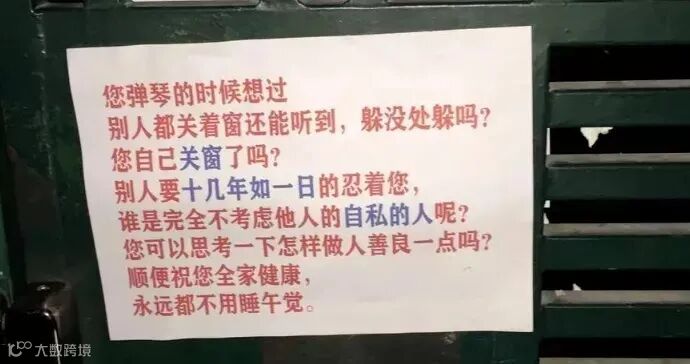 您弹琴的时候想过
别人都关着窗还能听到，躲没处躲吗？
您自己关窗了吗？
别人要十几年如一日的忍着您，
谁是完全不考虑他人的自私的人呢？
您可以思考一下怎样做人善良一点吗？
顺便祝您全家健康，
永远都不用睡午觉。
大数跨境